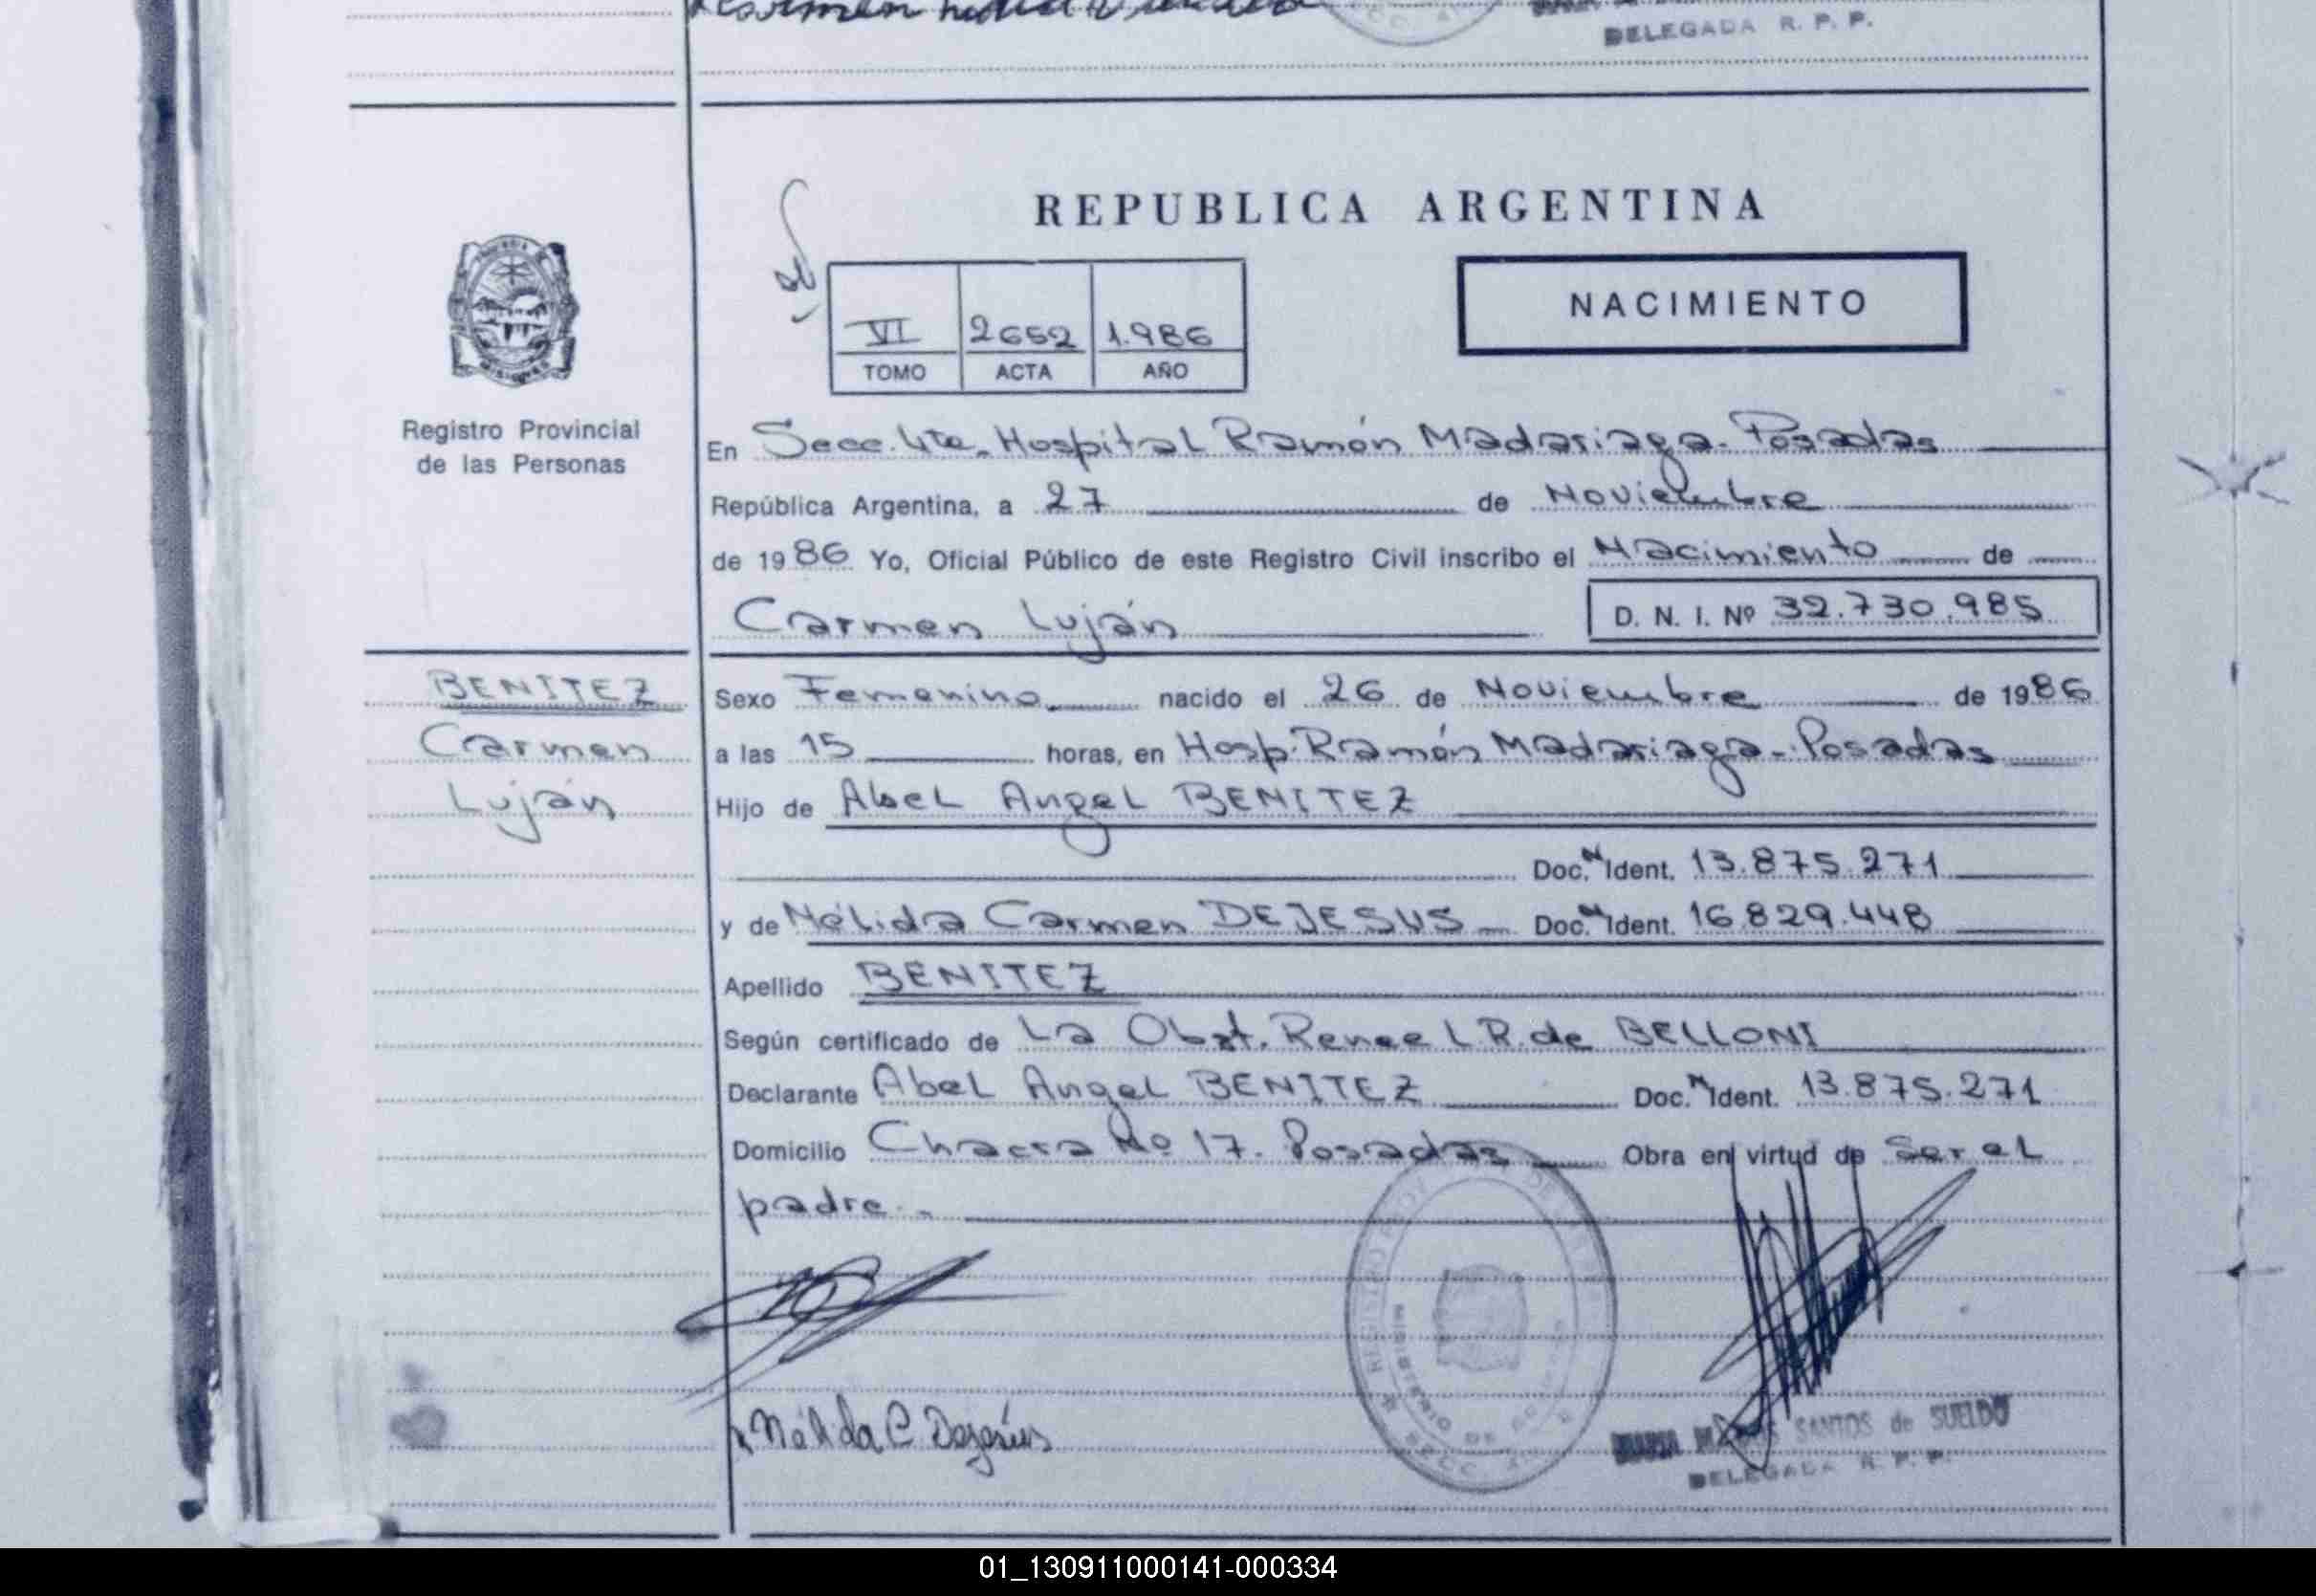 DELEGADA R. P. P.
REPUBLICA ARGENTINA
NACIMIENTO
VI 2652 1.986
TOMO ACTA AÑO
Registro Provincial
de las Personas
En Secc. 4ta. Hospital Ramón Madariaga - Posadas
República Argentina, a 27 de Noviembre
de 1986 Yo, Oficial Público de este Registro Civil inscribo el Nacimiento de
Carmen Luján D. N. I. Nº 32.730.985
BENITEZ
Carmen
Luján
Sexo Femenino nacido el 26 de Noviembre de 1986
a las 15 horas, en Hosp. Ramón Madariaga - Posadas
Hijo de Abel Angel BENITEZ
Doc. N Ident. 13.875.271
y de Nélida Carmen DEJESUS Doc. N Ident. 16.829.448
Apellido BENITEZ
Según certificado de La Obst. Renee L.R. de BELLONI
Declarante Abel Angel BENITEZ Doc. N Ident. 13.875.271
Domicilio Chacra Nº 17. Posadas Obra en virtud de Ser el
padre.-
Nélida C Dejesús
SANTOS de SUELDO
DELEGADA R. P. P.
01_130911000141-000334